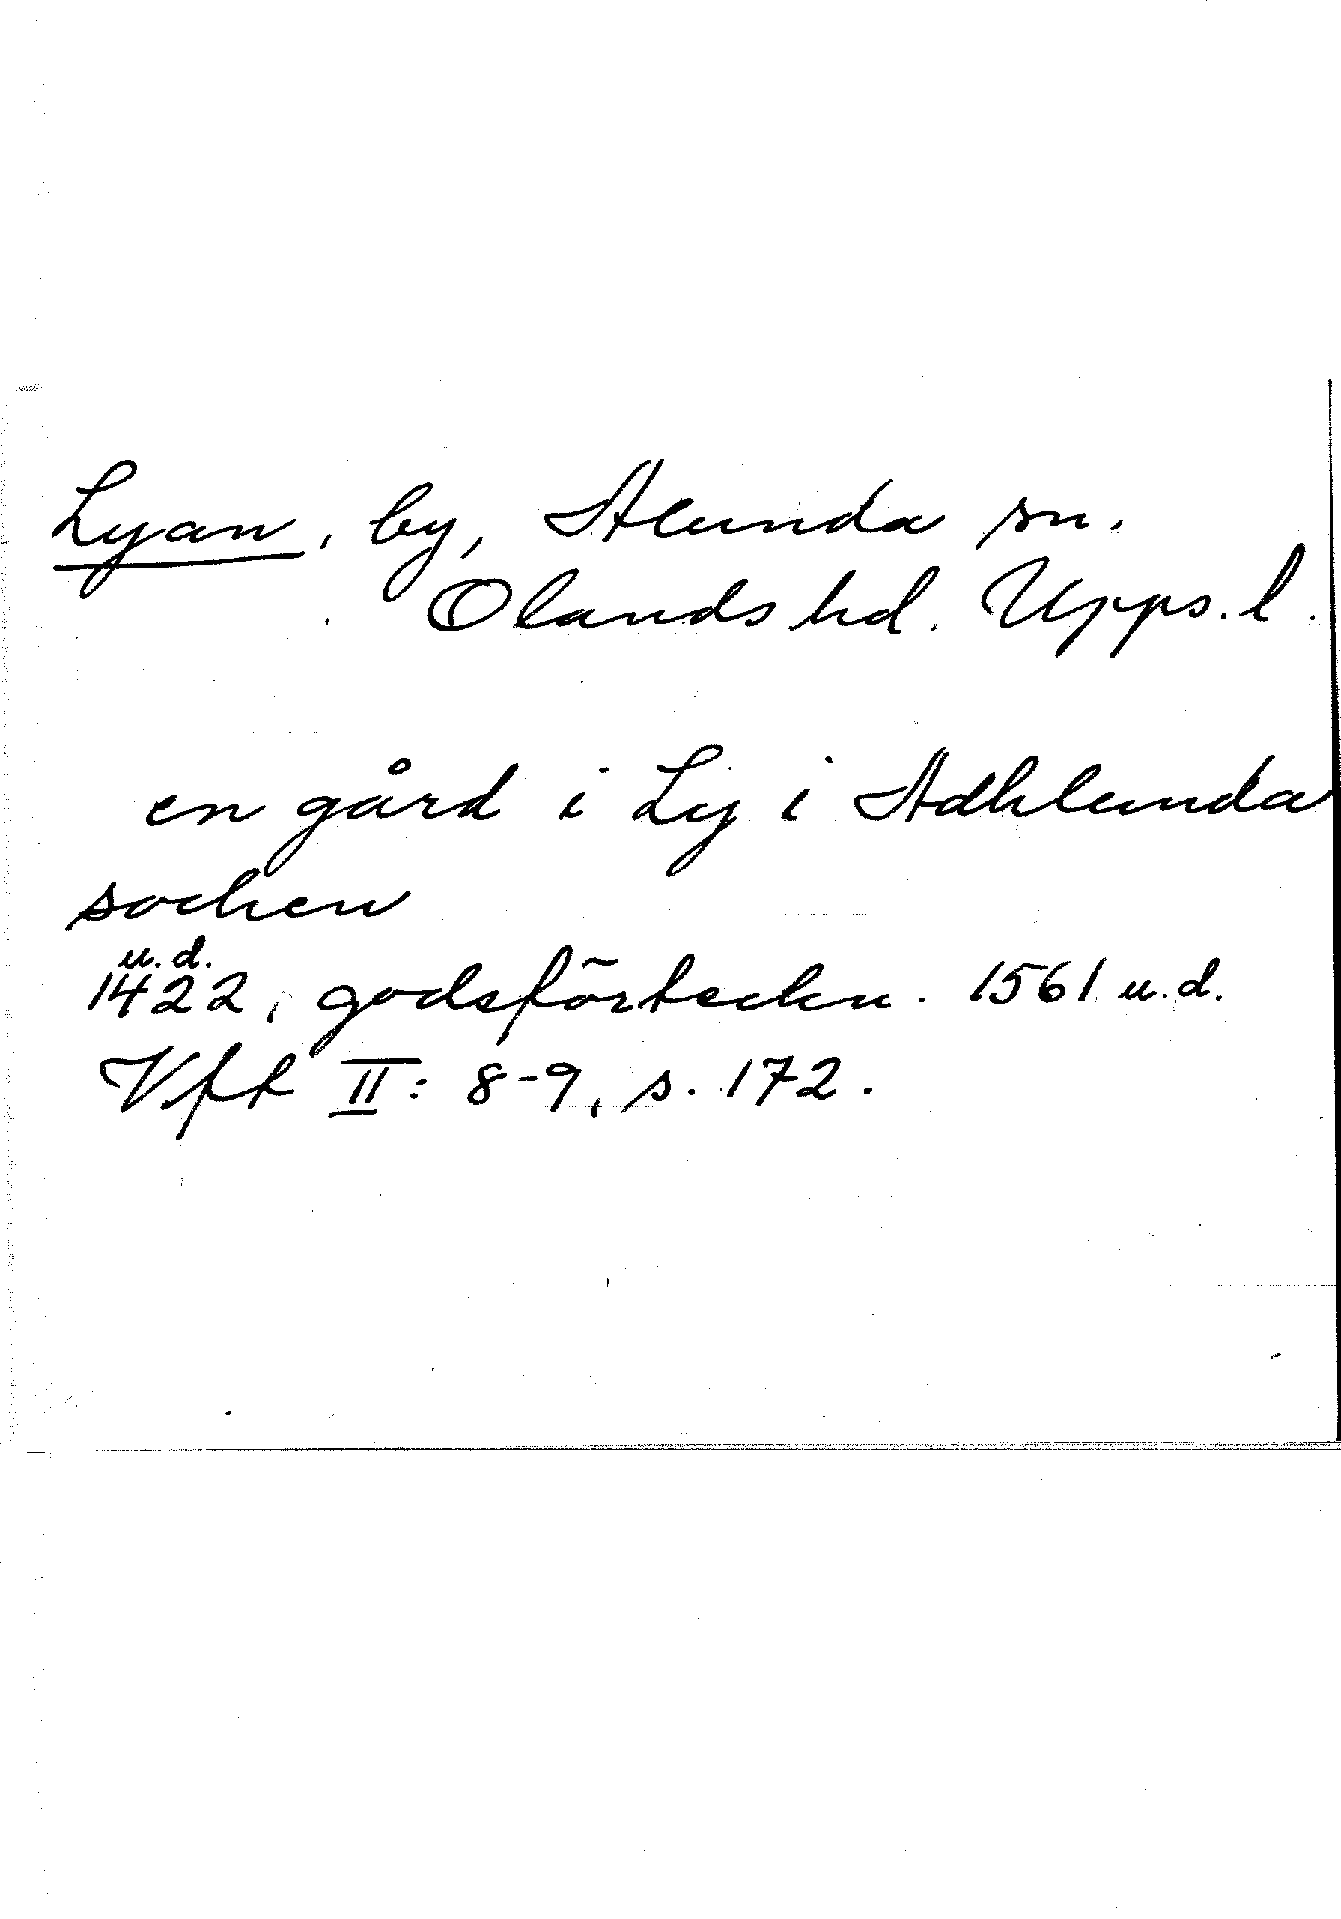 Lyan, by, Alunda sn.
Olands hd. Upps. l.
en gård i Ly i Adhlunda
sochen
u.d.
1422, godsförteckn. 1561 u.d.
Vft II: 8-9, s. 172.